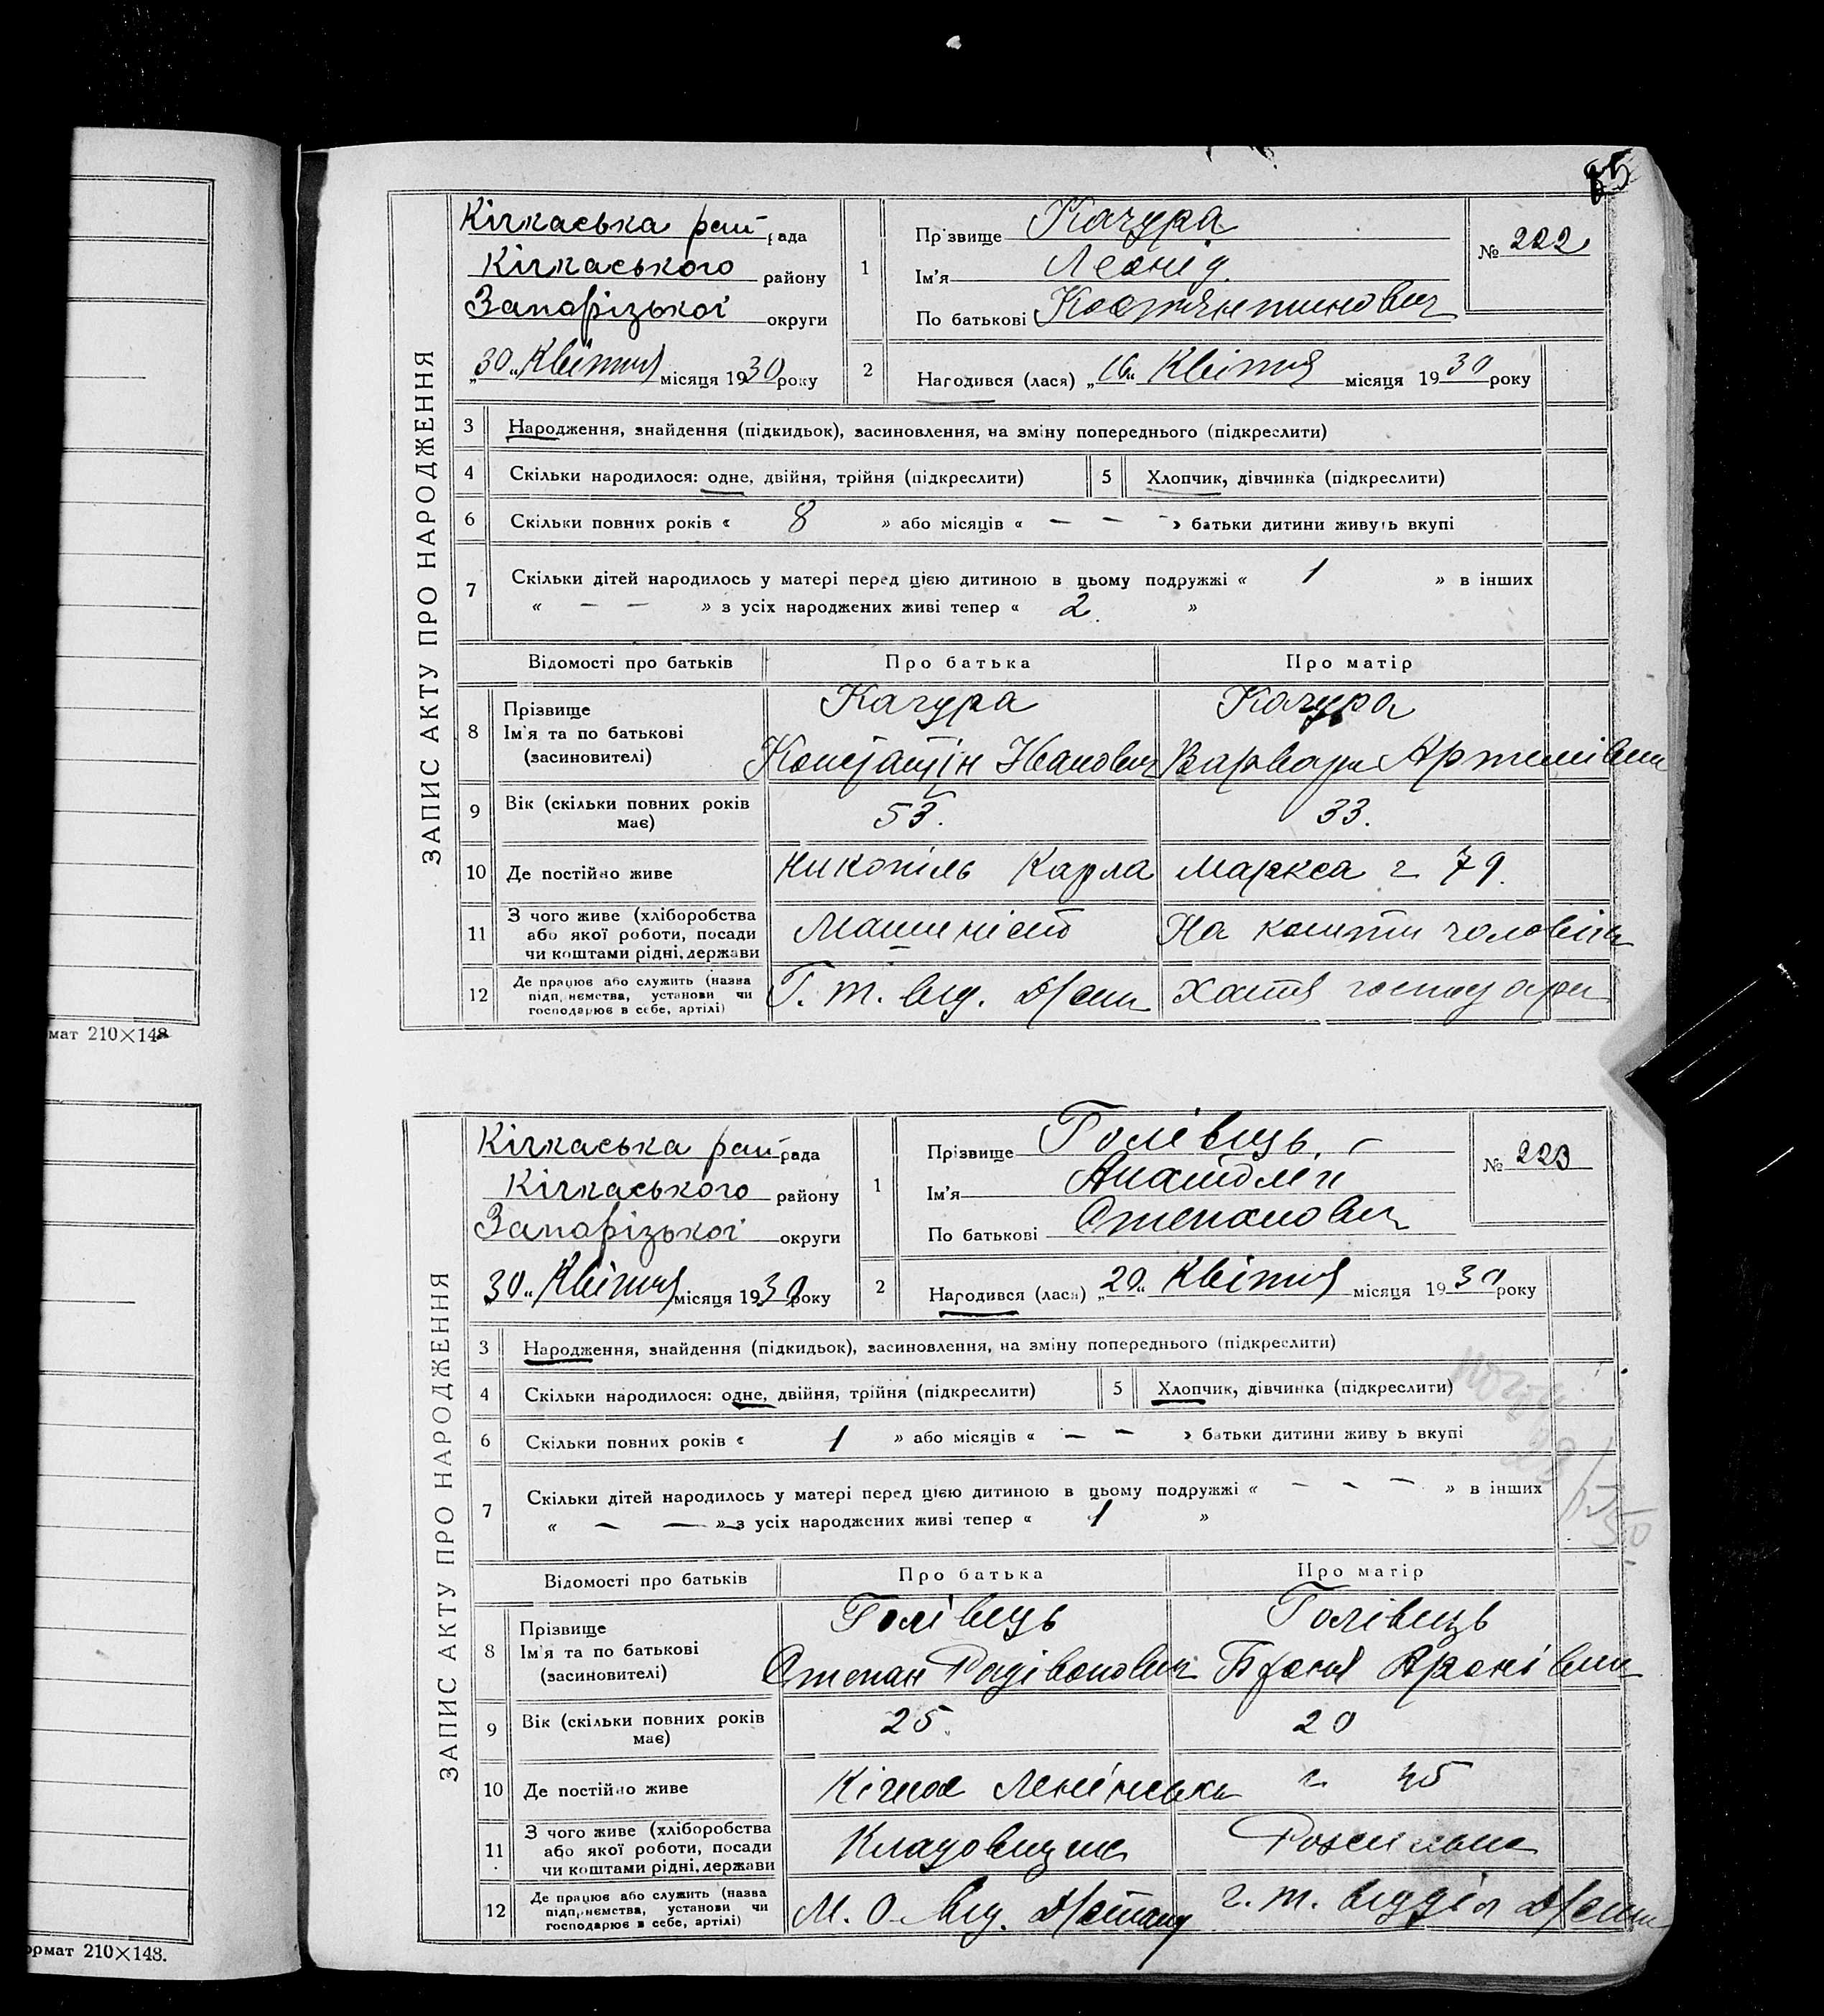 85
ЗАПИС АКТУ ПРО НАРОДЖЕННЯ
Кічкаська рай рада
Кічкаського району
Запорізької округи
„30“ Квітня місяця 1930 року
1
Прізвище Качура
Ім'я Леонид
По батькові Костянтинович
№ 222
2
Народився (лася) „16“ Квітня місяця 1930 року
3 Народження, знайдення (підкидьок), засиновлення, на зміну попереднього (підкреслити)
4 Скільки народилося: одне, двійня, трійня (підкреслити) 5 Хлопчик, дівчинка (підкреслити)
6 Скільки повних років « 8 » або місяців « — — — » батьки дитини живуть вкупі
7 Скільки дітей народилось у матері перед цією дитиною в цьому подружжі « 1 » в інших
« — — » з усіх народжених живі тепер « 2 »
Відомості про батьків Про батька Про матір
8 Прізвище Ім'я та по батькові (засновителі) Качура Качура
Іванович Варвара Артемівна
9 Вік (скільки повних років має) 53. 33.
10 Де постійно живе Никопіль Карла Маркса 79.
11 З чого живе (хліборобства або якої роботи, посади чи коштами рідні, держави Машиніст На кошти чоловіка
12 Де працює або служить (назва підприємства, установи чи господарює в себе, артілі) Г. т. від. Хатня
мат 210×148
ЗАПИС АКТУ ПРО НАРОДЖЕННЯ
Кічкаська рай рада
Кічкаського району
Запорізької округи
30“ Квітня місяця 1930 року
1
Прізвище Голівець,
Ім'я Анатолій
По батькові Степанович
№ 223
2
Народився (лася) „20“ Квітня місяця 1930 року
3 Народження, знайдення (підкидьок), засиновлення, на зміну попереднього (підкреслити)
4 Скільки народилося: одне, двійня, трійня (підкреслити) 5 Хлопчик, дівчинка (підкреслити)
6 Скільки повних років « 1 » або місяців « — — » батьки дитини живуь вкупі
7 Скільки дітей народилось у матері перед цією дитиною в цьому подружжі « — — — » в інших
« — — » з усіх народжених живі тепер « 1 »
Відомості про батьків Про батька Про матір
8 Прізвище Ім'я та по батькові (засиновителі) Голівець Голівець
Степан Радівонович Броня Аронівна
9 Вік (скільки повних років має) 25. 20
10 Де постійно живе Кічкас Ленінська 45
11 З чого живе (хліборобства або якої роботи, посади чи коштами рідні, держави
12 Де працює або служить (назва підприємства, установи чи господарює в себе, артілі) М. О. від. г. т. відділ
ормат 210×148.